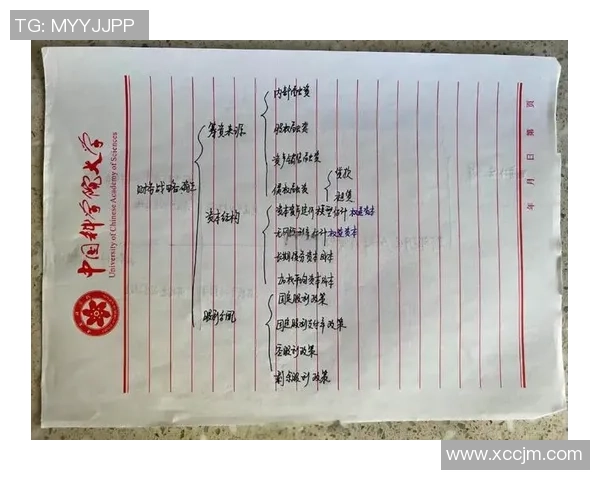 TG: MYYJJPP
中国科学院大学
University of Chinese Academy of Sciences
年 月 日 第 页
财务战略确立
筹资来源
内部融资
股权融资
资产销售融资
债权融资
贷款
租赁
资本结构
资本资产定价模型估计权益资本
无风险利率估计权益资本
长期债务资本成本
加权平均资本成本
股利分配
固定股利政策
固定股利支付率政策
零股利政策
剩余股利政策
www.xccjm.com